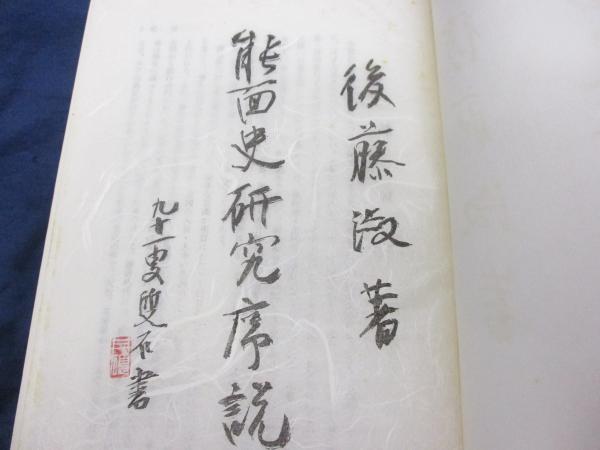 後藤淑著
能面史研究序説
九十一叟雙石書